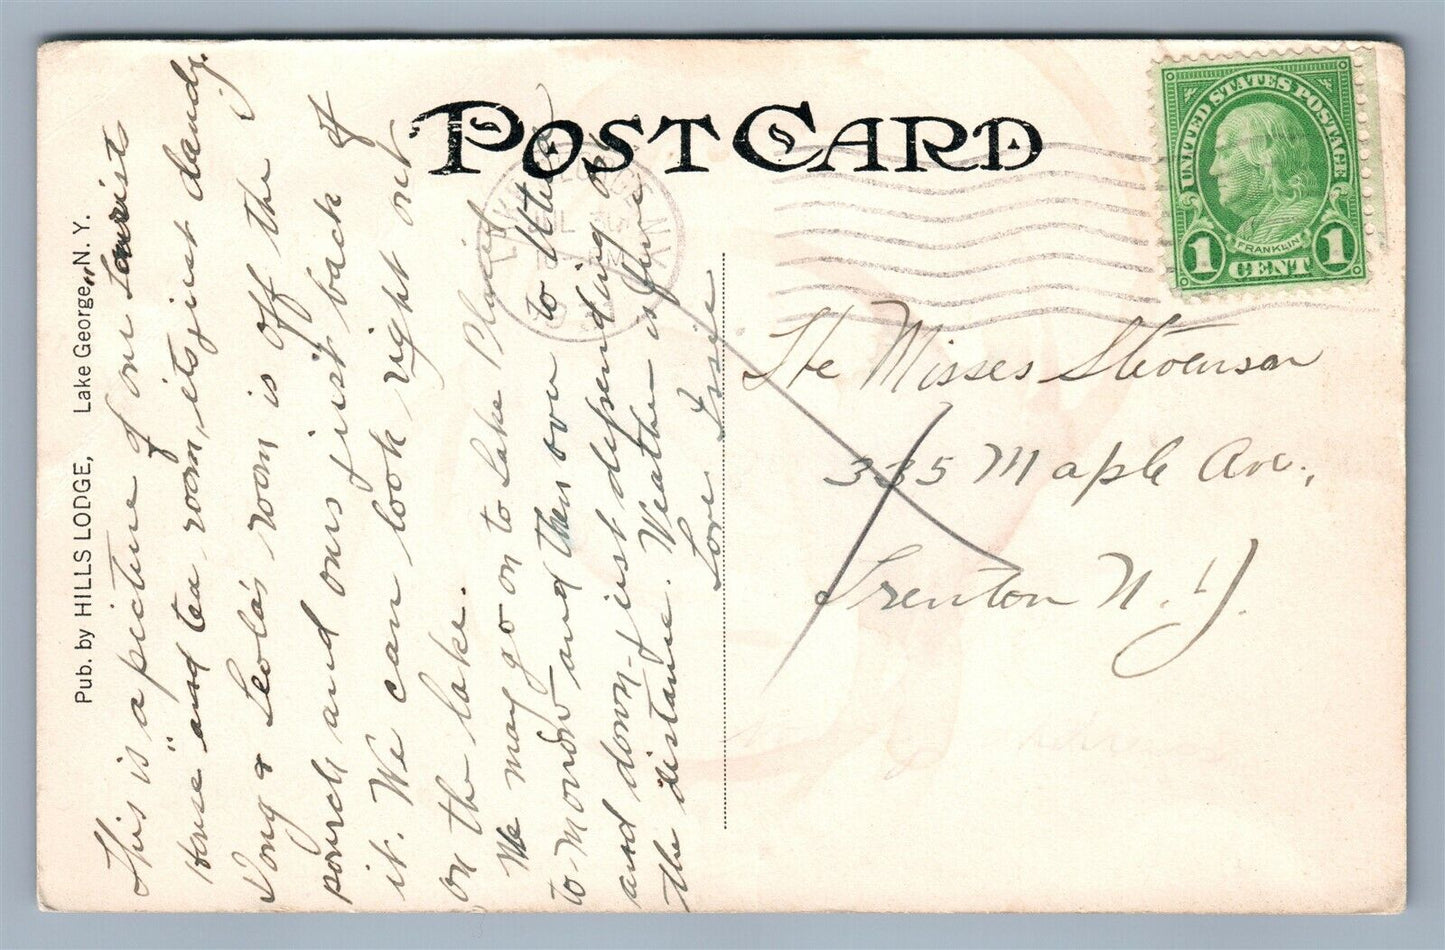 POST CARD
Pub. by HILLS LODGE, Lake George, N. Y.
UNITED STATES POSTAGE
FRANKLIN
1 CENT 1
This is a picture of our "Tourist
House" and tea room, its just dandy.
Doug & Leola's room is off the
porch and ours just back of
it. We can look right out
on the lake.
We may go on to Lake Placid
to-morrow and then over to
and down - just depending on
the distance. Weather is fine
Love
The Misses Stevenson
335 Maple Ave.,
Trenton N. J.